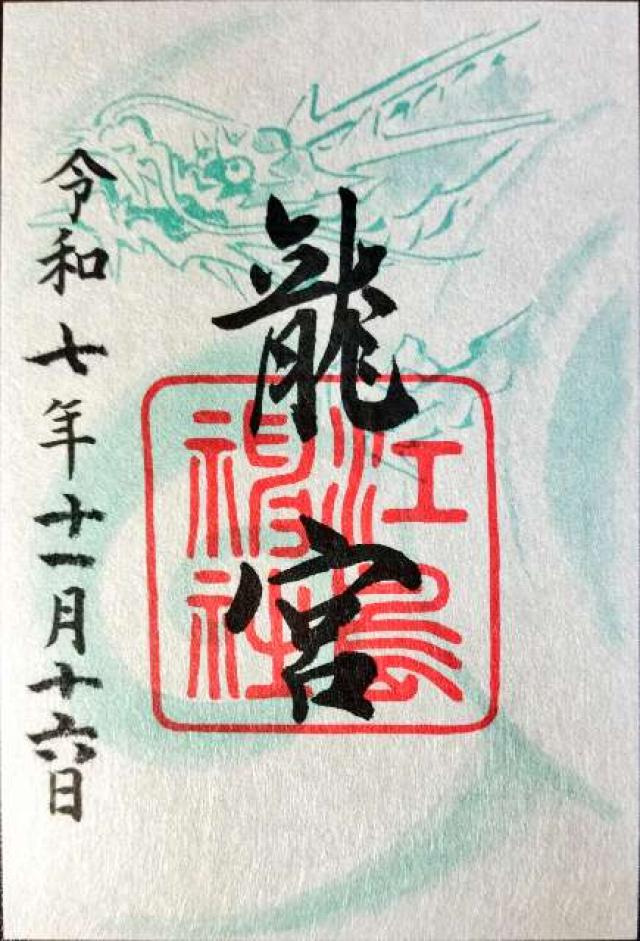 龍宮
江島神社
令和七年十一月十六日